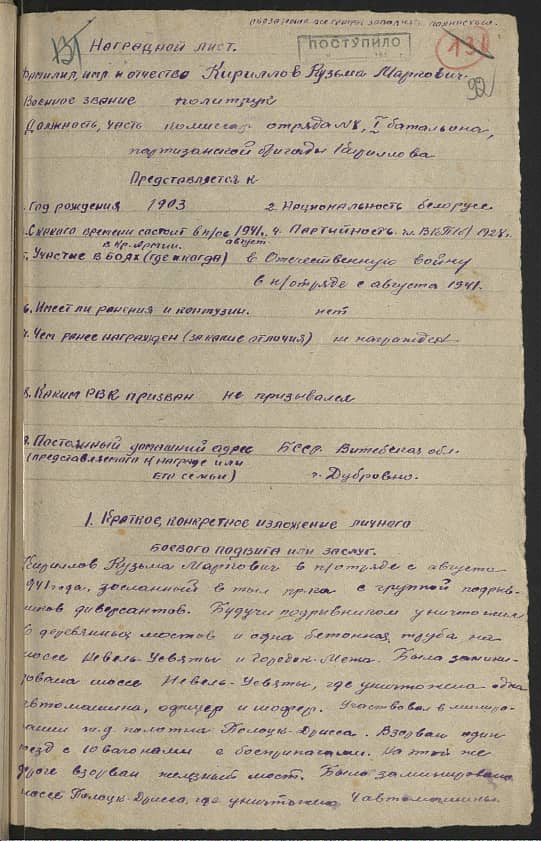 131
ПОСТУПИЛО
131
92
Наградной лист.
Фамилия, имя и отчество Кириллов Кузьма Маркович
Военное звание политрук
Должность, часть комиссар отряда №8, I батальона,
партизанской бригады Кириллова
Представляется к
1. Год рождения 1903 2. Национальность белорусс
3. С какого времени состоит в п/от 1941г. 4. Партийность. чл. ВКП(б) 1928г.
в Кр. Армии. август
5. Участие в боях (где и когда) в Отечественную войну
в п/отряде с августа 1941.
6. Имеет ли ранения и контузии. нет
7. Чем ранее награжден (за какие отличия) не награжден
8. Каким РВК призван не призывался
9. Постоянный домашний адрес БССР. Витебская обл.
(представляемого к награде или
его семьи) г. Дубровно.
1. Краткое, конкретное изложение личного
боевого подвига или заслуг.
Кириллов Кузьма Маркович в п/отряде с августа
1941 года, засланный в тыл пр-ка с группой подрыв-
ников диверсантов. Будучи подрывником уничтожил
6 деревянных мостов и одна бетонная труба на
шоссе Невель-Усвяты и Городок-Межа. Была замини-
рована шоссе Невель-Усвяты, где уничтожена одна
автомашина, офицер и шофер. Участвовал в миниро-
вании ж.д. полотна Полоцк-Дрисса. Взорван один
поезд с 10 вагонами с боеприпасами. На той же
дороге взорван железный мост. Было заминировано
шоссе Полоцк-Дрисса, где уничтожено 4 автомашины